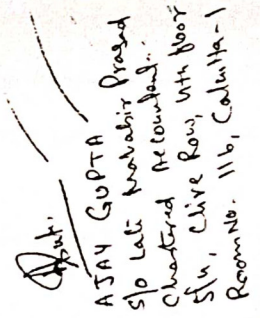 AJAY GUPTA
S/o Late Mahabir Prasad
Chartered Accountant.
5/4, Clive Row, 4th floor
Room No. 116, Calcutta-1